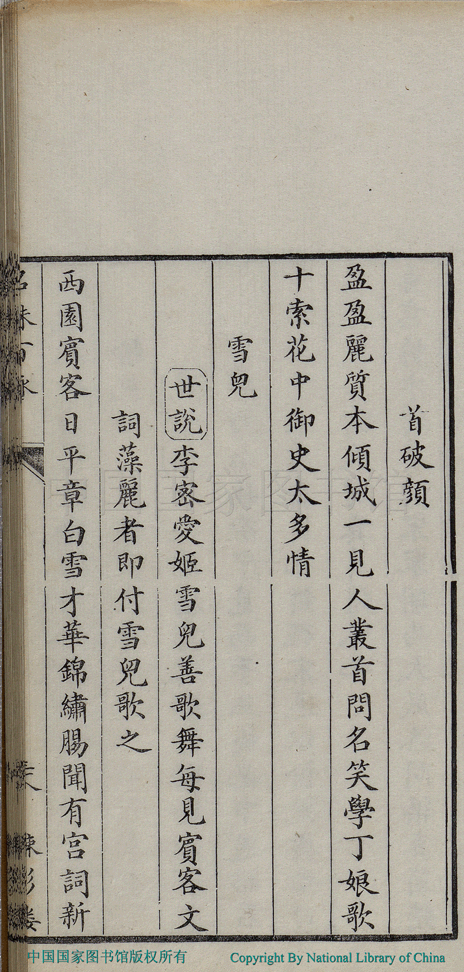 首破顔
盈盈麗質本傾城一見人叢首問名笑學丁娘歌
十索花中御史太多情
雪兒
世說李密愛姬雪兒善歌舞每見賓客文
詞藻麗者即付雪兒歌之
西園賓客日平章白雪才華錦繡腸聞有宮詞新
中国国家图书馆版权所有
Copyright By National Library of China